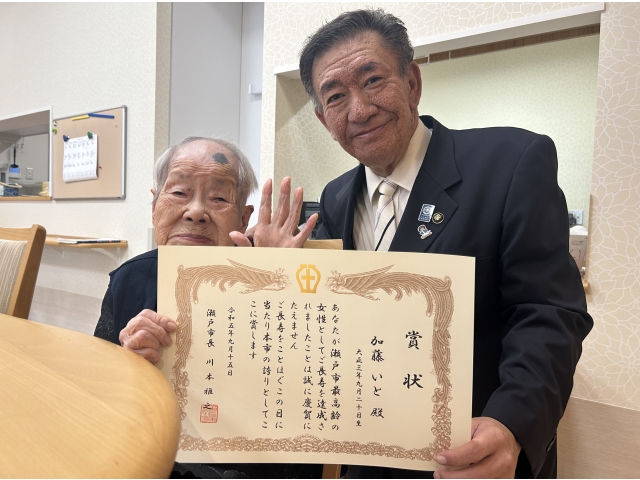 賞状
加藤いと殿
大正三年九月二十日生
あなたが瀬戸市最高齢の
女性としてご長寿を達成さ
れましたことは誠に慶賀に
たえません
ご長寿をことほぐこの日に
当たり本市の誇りとしてこ
こに賞します
令和五年九月十五日
瀬戸市長 川本雅之